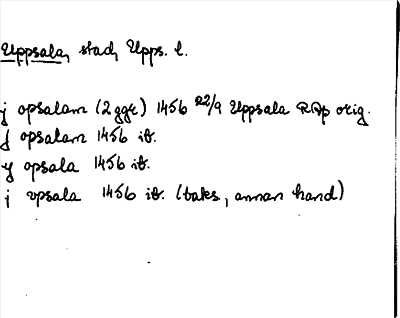 Uppsala, stad, Upps. l.
j opsalam (2 ggr) 1456 22/9 Uppsala RAp orig.
j opsalam 1456 ib.
y opsala 1456 ib.
j vpsala 1456 ib. (baks, annan hand)